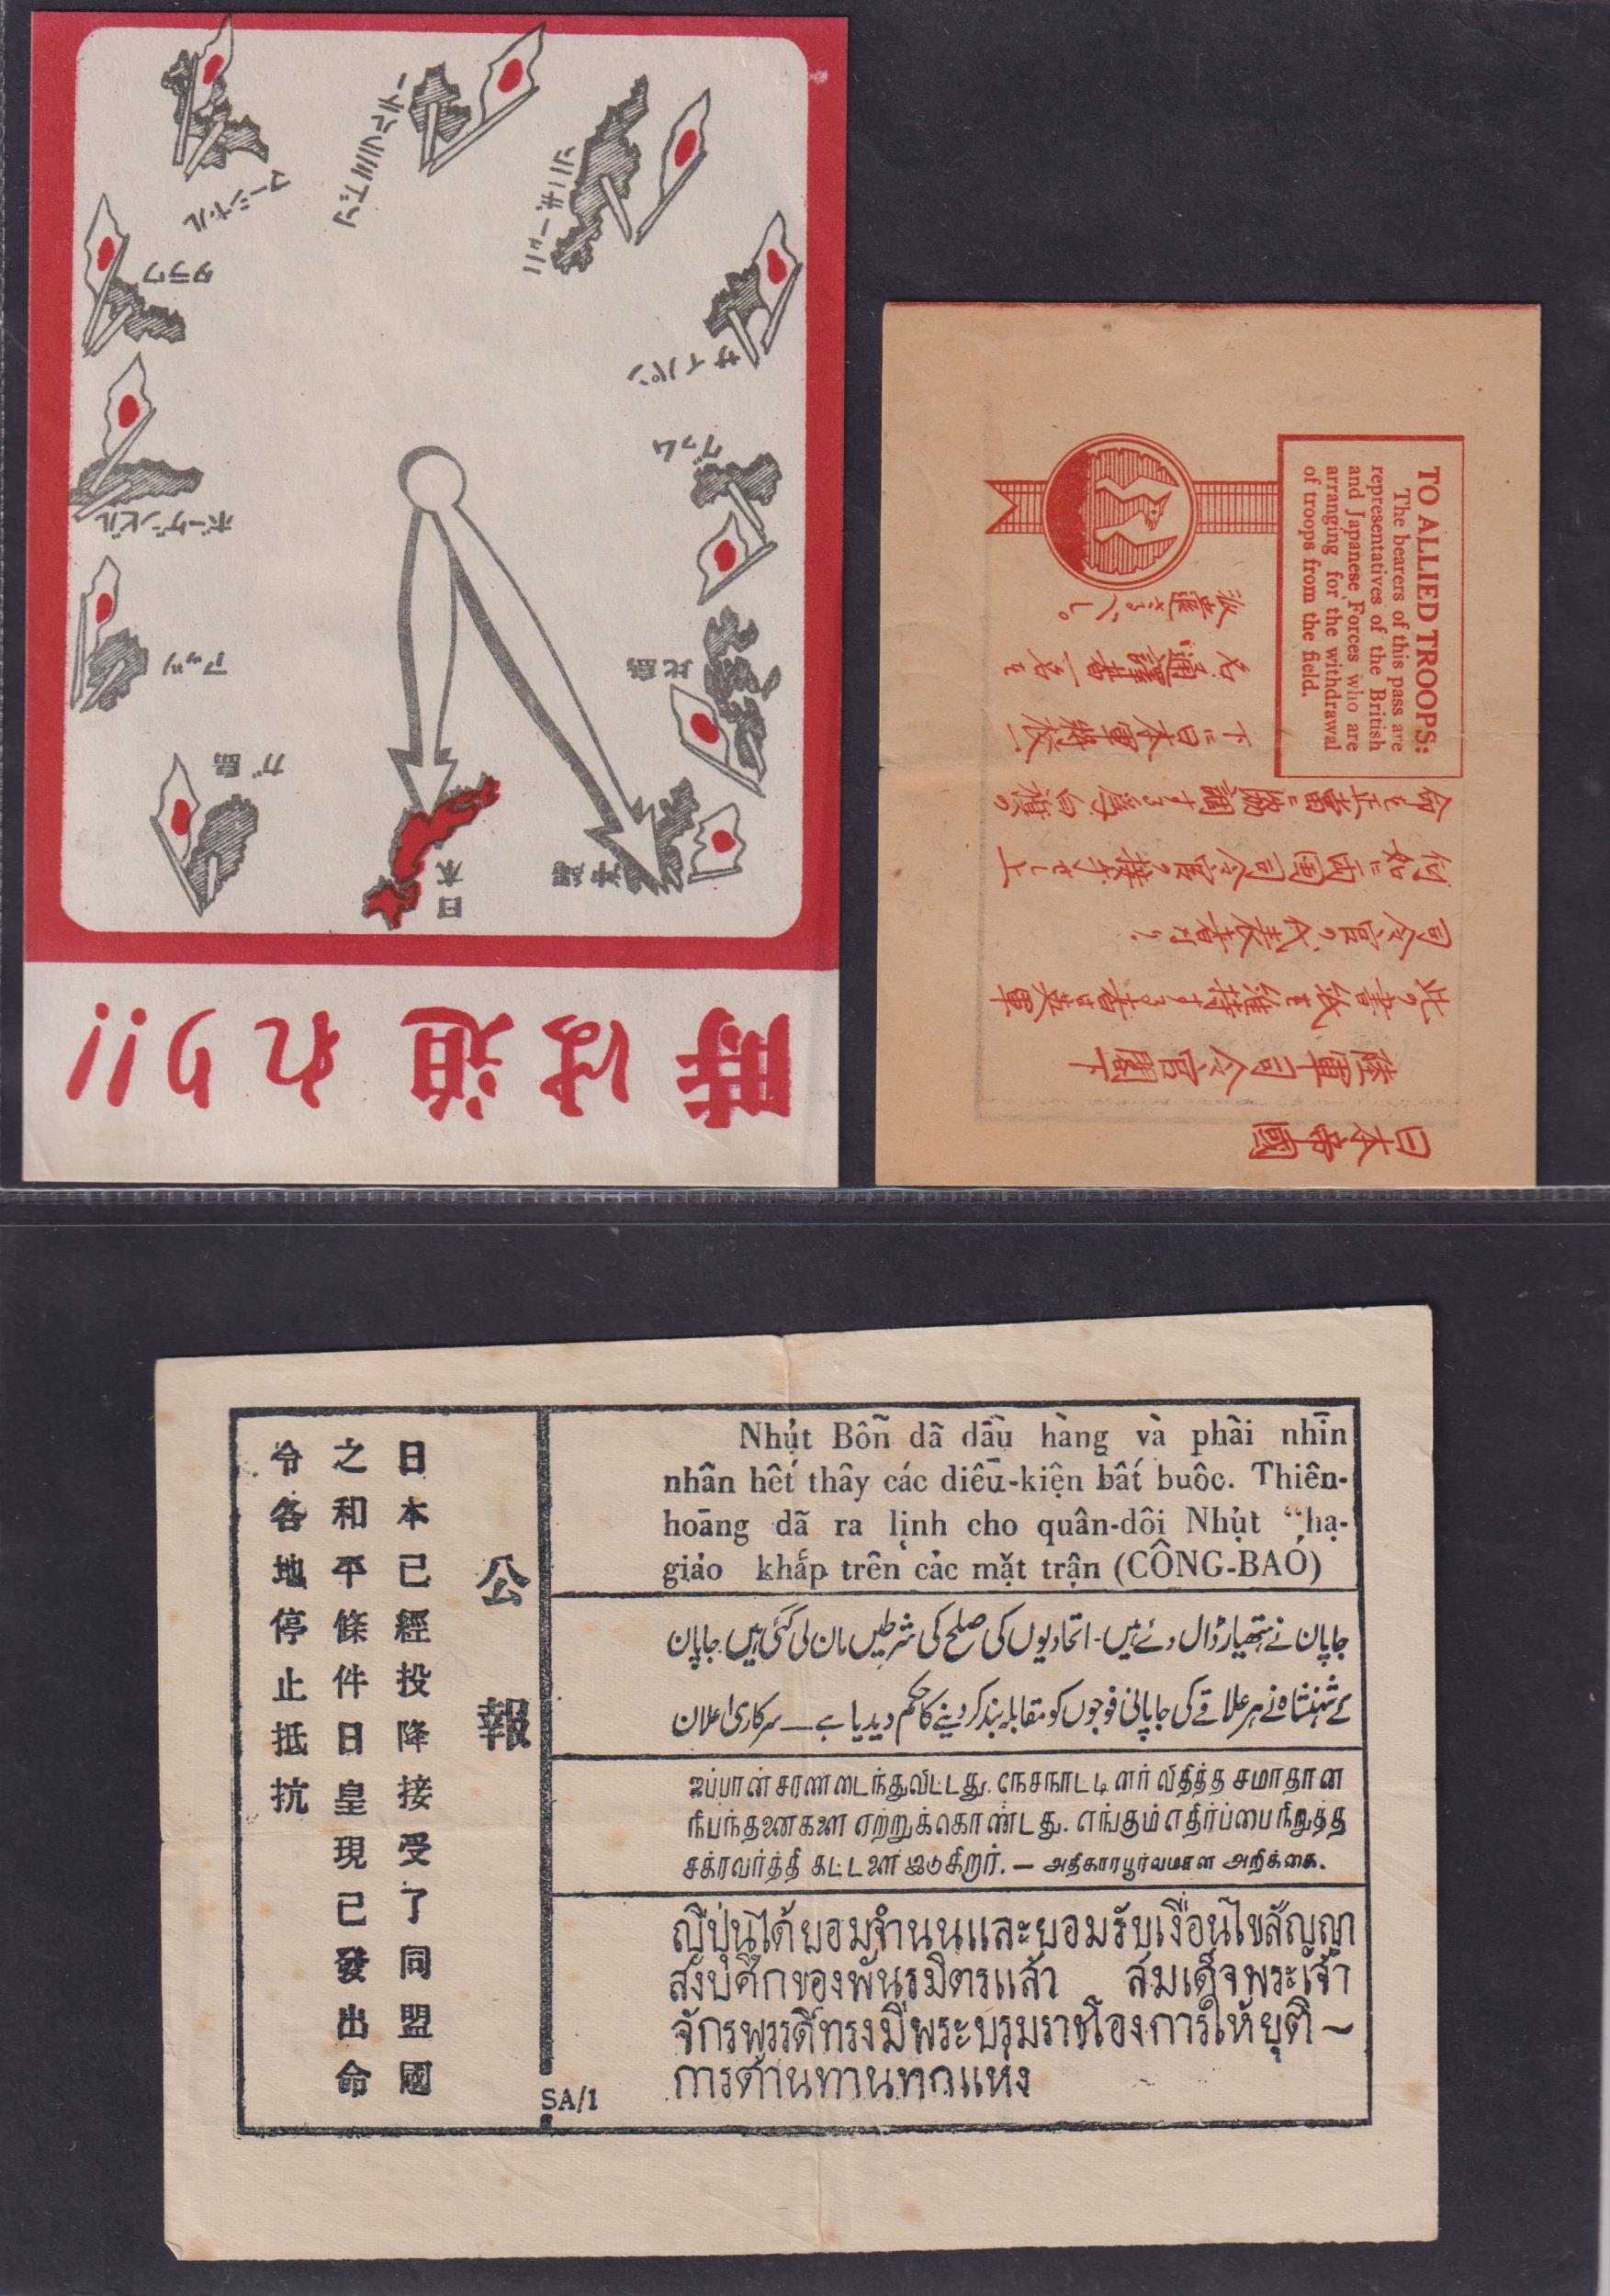 時は迫れり!!
日本
沖縄
比島
グァム
サイパン
ニューギニア
マーシャル
タラワ
ボーゲンビル
アッツ
ガ島
TO ALLIED TROOPS:
The bearers of this pass are
representatives of the British
and Japanese Forces who are
arranging for the withdrawal
of troops from the field.
日本帝國
陸軍司令官閣下
此の書級を維持する者は英軍
司令官の代表者なり
名通譯者一名を
公報
日本已經投降接受了同盟國
之和平條件日皇現已發出命
令各地停止抵抗
Nhựt Bổn đã đầu hàng và phải nhìn
nhận hết thảy các điều-kiện bắt buộc. Thiên-
hoàng đã ra lịnh cho quân-đội Nhựt “hạ-
giáo khắp trên các mặt trận (CÔNG-BÁO)
جاپان نے ہتھیار ڈال دئے ہیں۔ اتحادیوں کی صلح کی شرطیں مان لی گئی ہیں۔ جاپان
کے شہنشاہ نے ہر علاقے کی جاپانی فوجوں کو مقابلہ بند کر دینے کا حکم دیدیا ہے ـــ سرکاری اعلان
ஜப்பான் சரணடைந்துவிட்டது. நேசநாட்டினர் விதித்த சமாதான
நிபந்தனைகளை ஏற்றுக்கொண்டது. எங்கும் எதிர்ப்பை நிறுத்த
சக்ரவர்த்தி கட்டளை இடுகிறார். — அதிகாரபூர்வமான அறிக்கை.
ญี่ปุ่นได้ยอมจำนนและยอมรับเงื่อนไขสัญญา
สงบศึกของพันธมิตรแล้ว สมเด็จพระเจ้า
จักรพรรดิ์ทรงมีพระบรมราชโองการให้ยุติ ~
การต้านทานทุกแห่ง
SA/1